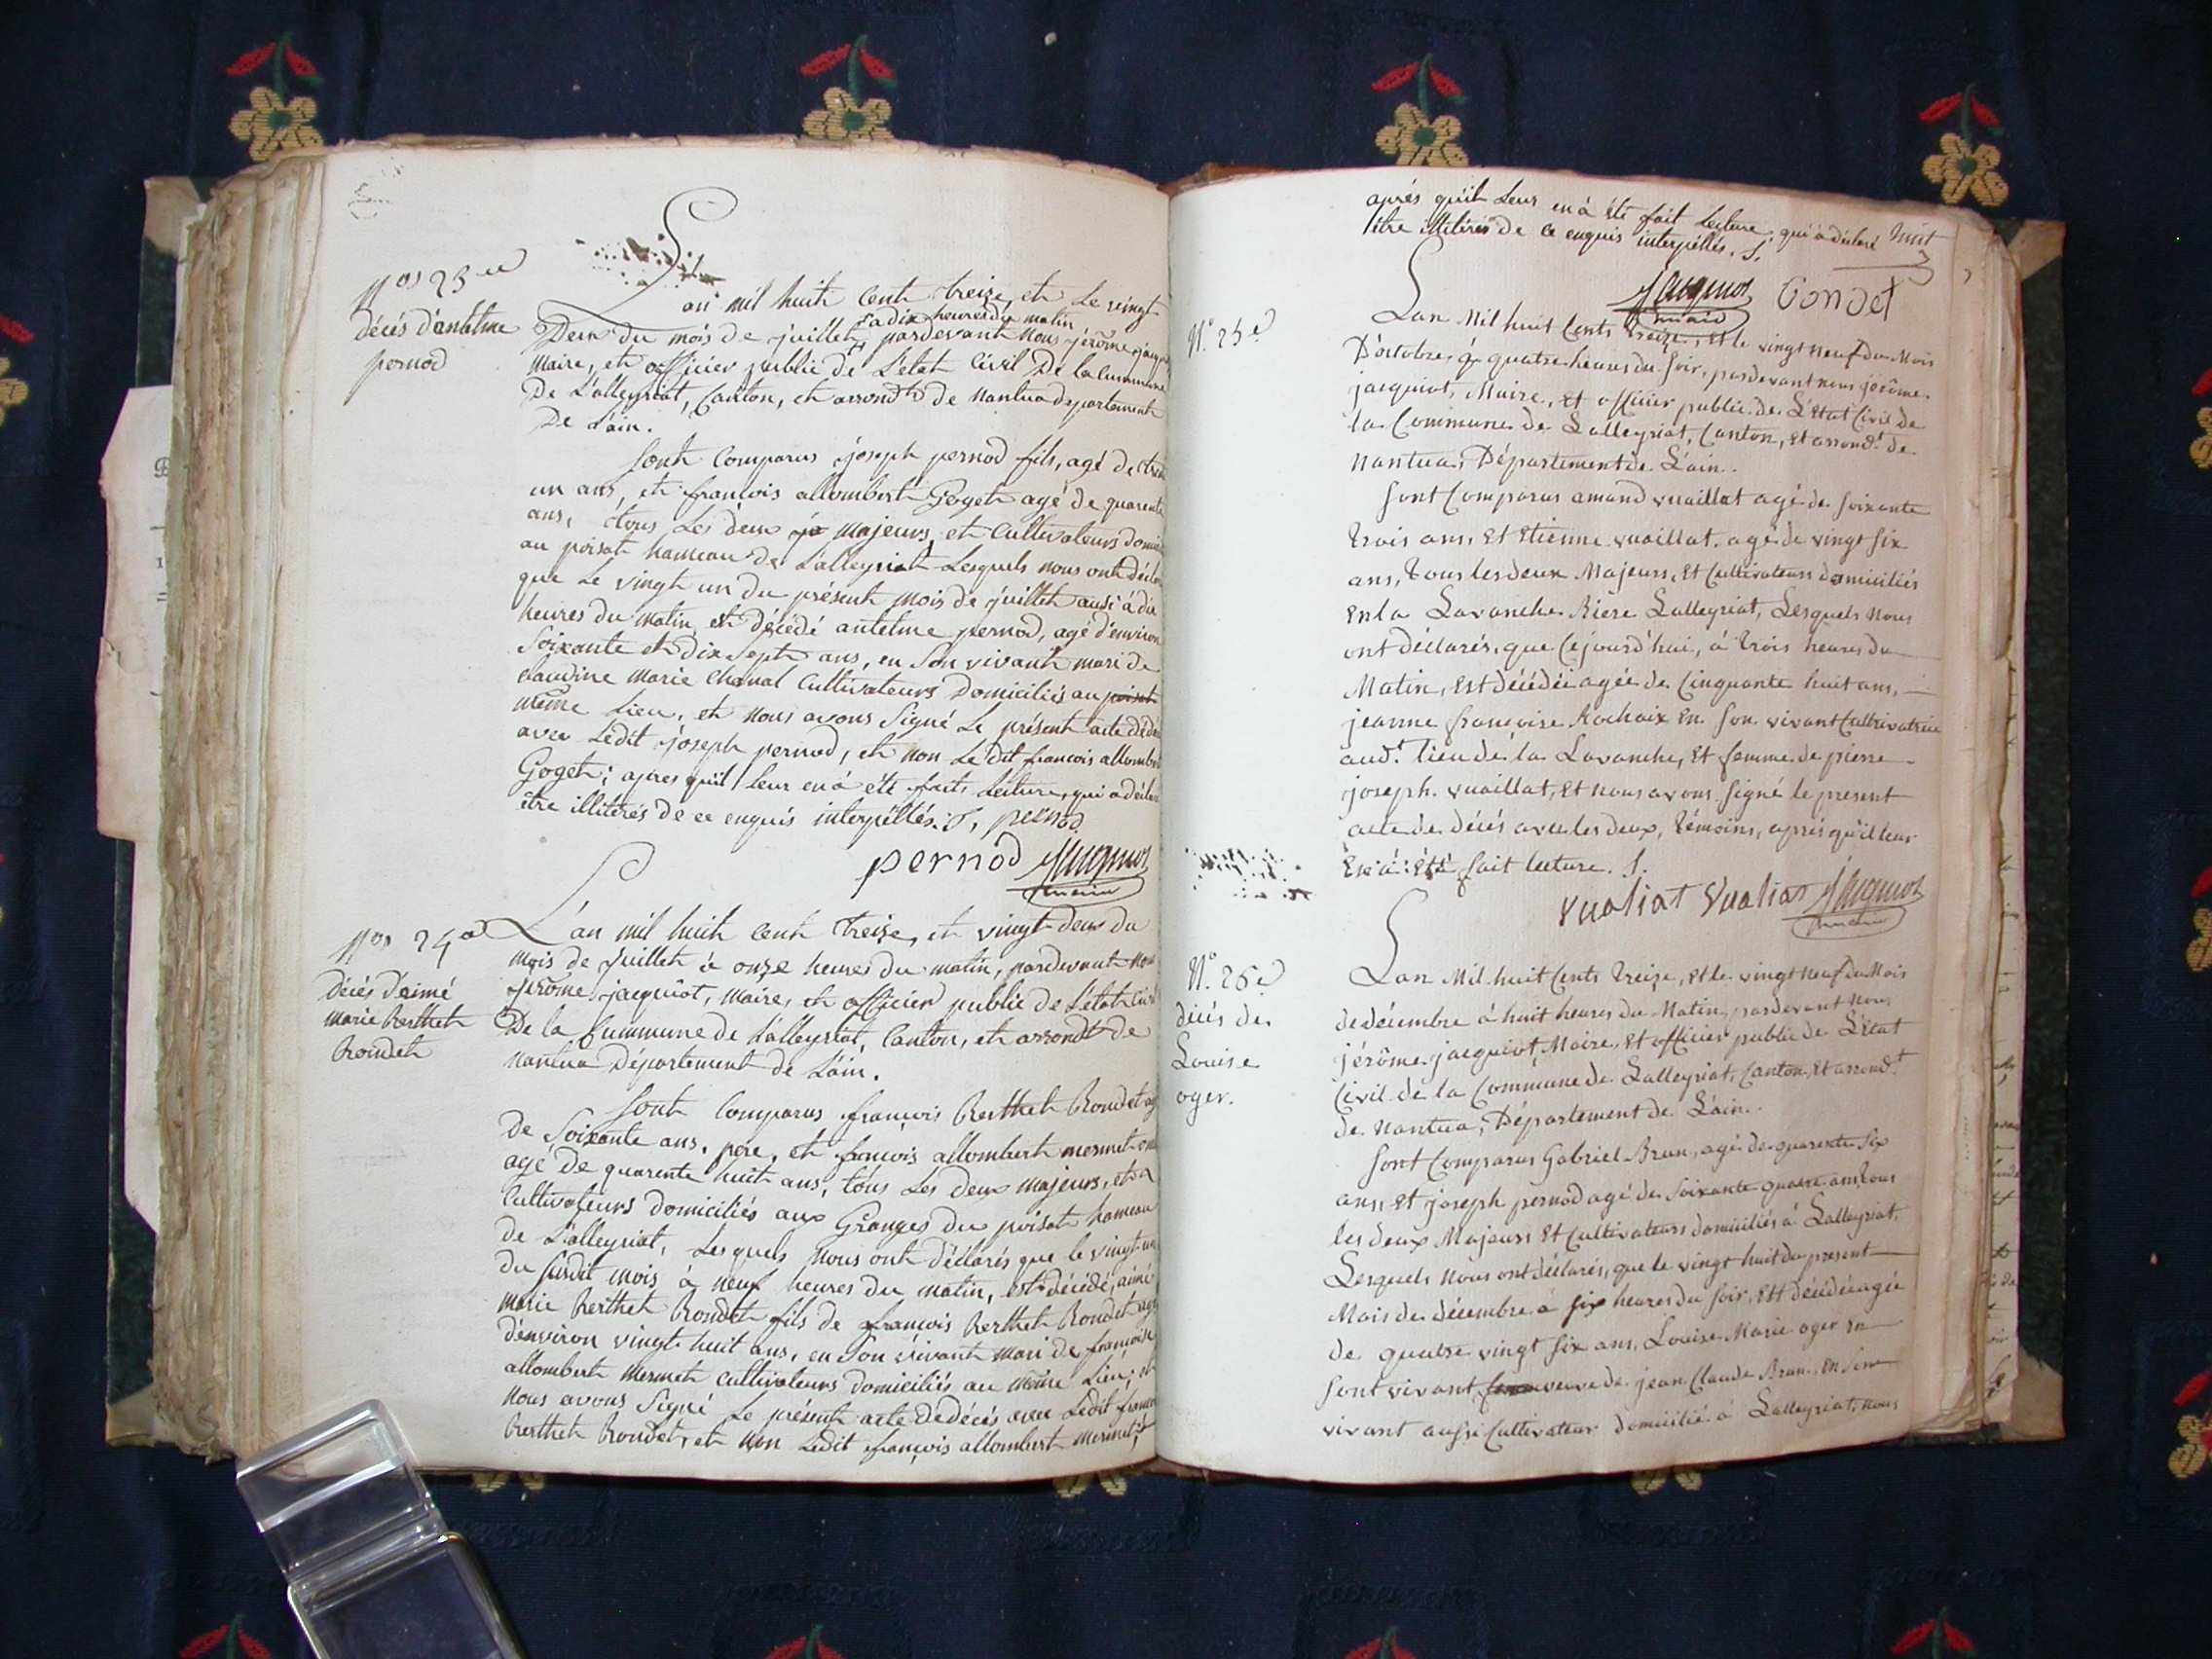 Nos 23me
décés d'antelme
pernod
L'an mil huit cent treize, et le vingt
Deux du mois de juillet, à dix heures du matin pardevant nous jérôme jacquiot
Maire, et officier public de L'état Civil De la Cummune
De L'alleyriat, Canton, et arrondt de Nantua departement
De L'ain.
Sont Comparus joseph pernod fils, agé de trente
un ans, et francois allombert Goget agé de quarente
ans, tous Les deux majeurs, et Cultivateurs domici
au poisat hameau de L'alleyriat Lesquels nous ont décla
que Le vingt un du présent mois de juillet aussi à dix
heures du matin, est décédé antelme pernod, agé d'environ
Soixante et dix Sept ans, en Son vivant mari de
claudine marie Chanal Cultivateurs Domiciliés au poisat
même Lieu, et nous avons Signé Le présent acte dédé
avec Ledit joseph pernod, et non Le dit francois allombert
Goget; après qu'il leur en a été fait, Lecture, qui a décla
être illitérés de ce enquis interpéllés. S, pernod
pernod Jacquiot
maire
Nos 24e
Décés d'aimé
marie Berthet
Bondet
L'an mil huit cent treize, et vingt deux du
mois de Juillet à onze heures du matin, pardevant nous
Jérôme jacquiot, maire, et officier public de L'état Civil
De la Cummune de L'alleyriat, Canton, et arrondt de
Nantua Département de L'ain.
Sont Comparus françois Berthet Bondet ag
de Soixante ans, pere, et françois allombert mermet on
agé de quarente huit ans, tous Les deux majeurs, et
Cultivateurs domiciliés aux Granges du poisat hameau
de L'alleyriat, Lesquels nous ont déclarés que le vingt un
du susdit mois à neuf heures du matin, est décédé, aimé
marie Berthet Bondet fils de françois Berthet Bondet agé
d'environ vingt huit ans, en Son vivant mari de françoise
allombert mermet cultivateurs domiciliés au même Lieu; et
nous avons Signé Le présent acte de décés avec Ledit franco
Berthet Bondet, et non Ledit françois allombert mermet,
après qu'il Leur en à été fait Lecture, qui à déclaré
être illitérés de ce enquis interpéllés. S.
huit
Jacquiot Bondet
maire
N.o 25e
Lan Mil huit Cents treize, et le vingt neuf du Mois
D'octobre à quatre heures du Soir, pardevant nous jérôme
jacquiot, Maire, et officier public de L'Etat Civil de
la Commune de Lalleyriat, Canton, et arrondt de
Nantua, Département de L'ain.
Sont Comparus amand vuaillat agé de Soixante
trois ans, et Etienne vuaillat agé de vingt six
ans, tous les deux Majeurs, et Cultivateurs domiciliés
en la Lavanche Riere Lalleyriat, Lesquels nous
ont déclarés, que Cejourd'hui, à trois heures du
Matin, est décédée agée de Cinquante huit ans,
jeanne françoise Rochaix en Son vivant Cultivatrice
audt lieu de la Lavanche, et femme de pierre
joseph vuaillat, et nous avons Signé le present
acte de décés avec les deux, témoins, après qu'il leur
en à été fait lecture. S.
vualiat vualiat Jacquiot
maire
N.o 26e
décés de
Louise
oger.
Lan Mil huit Cents treize, et le vingt neuf du Mois
de décembre à huit heures du Matin, pardevant nous
jérôme jacquiot, Maire, et officier public de L'Etat
Civil de la Commune de Lalleyriat, Canton, et arrondt
de Nantua, Département de L'ain.
Sont Comparus Gabriel Brun, agé de quarente six
ans, et joseph pernod agé de Soixante quatre ans, tous
les deux Majeurs et Cultivateurs domiciliés à Lalleyriat.
Lesquels nous ont déclarés, que le vingt huit du present
Mois de décembre à six heures du soir, est décédée agée
de quatre vingt six ans, Louise Marie oger en
Sont vivant veuve de jean Claude Brun, en son
vivant aussi Cultivateur domicilié à Lalleyriat, nous